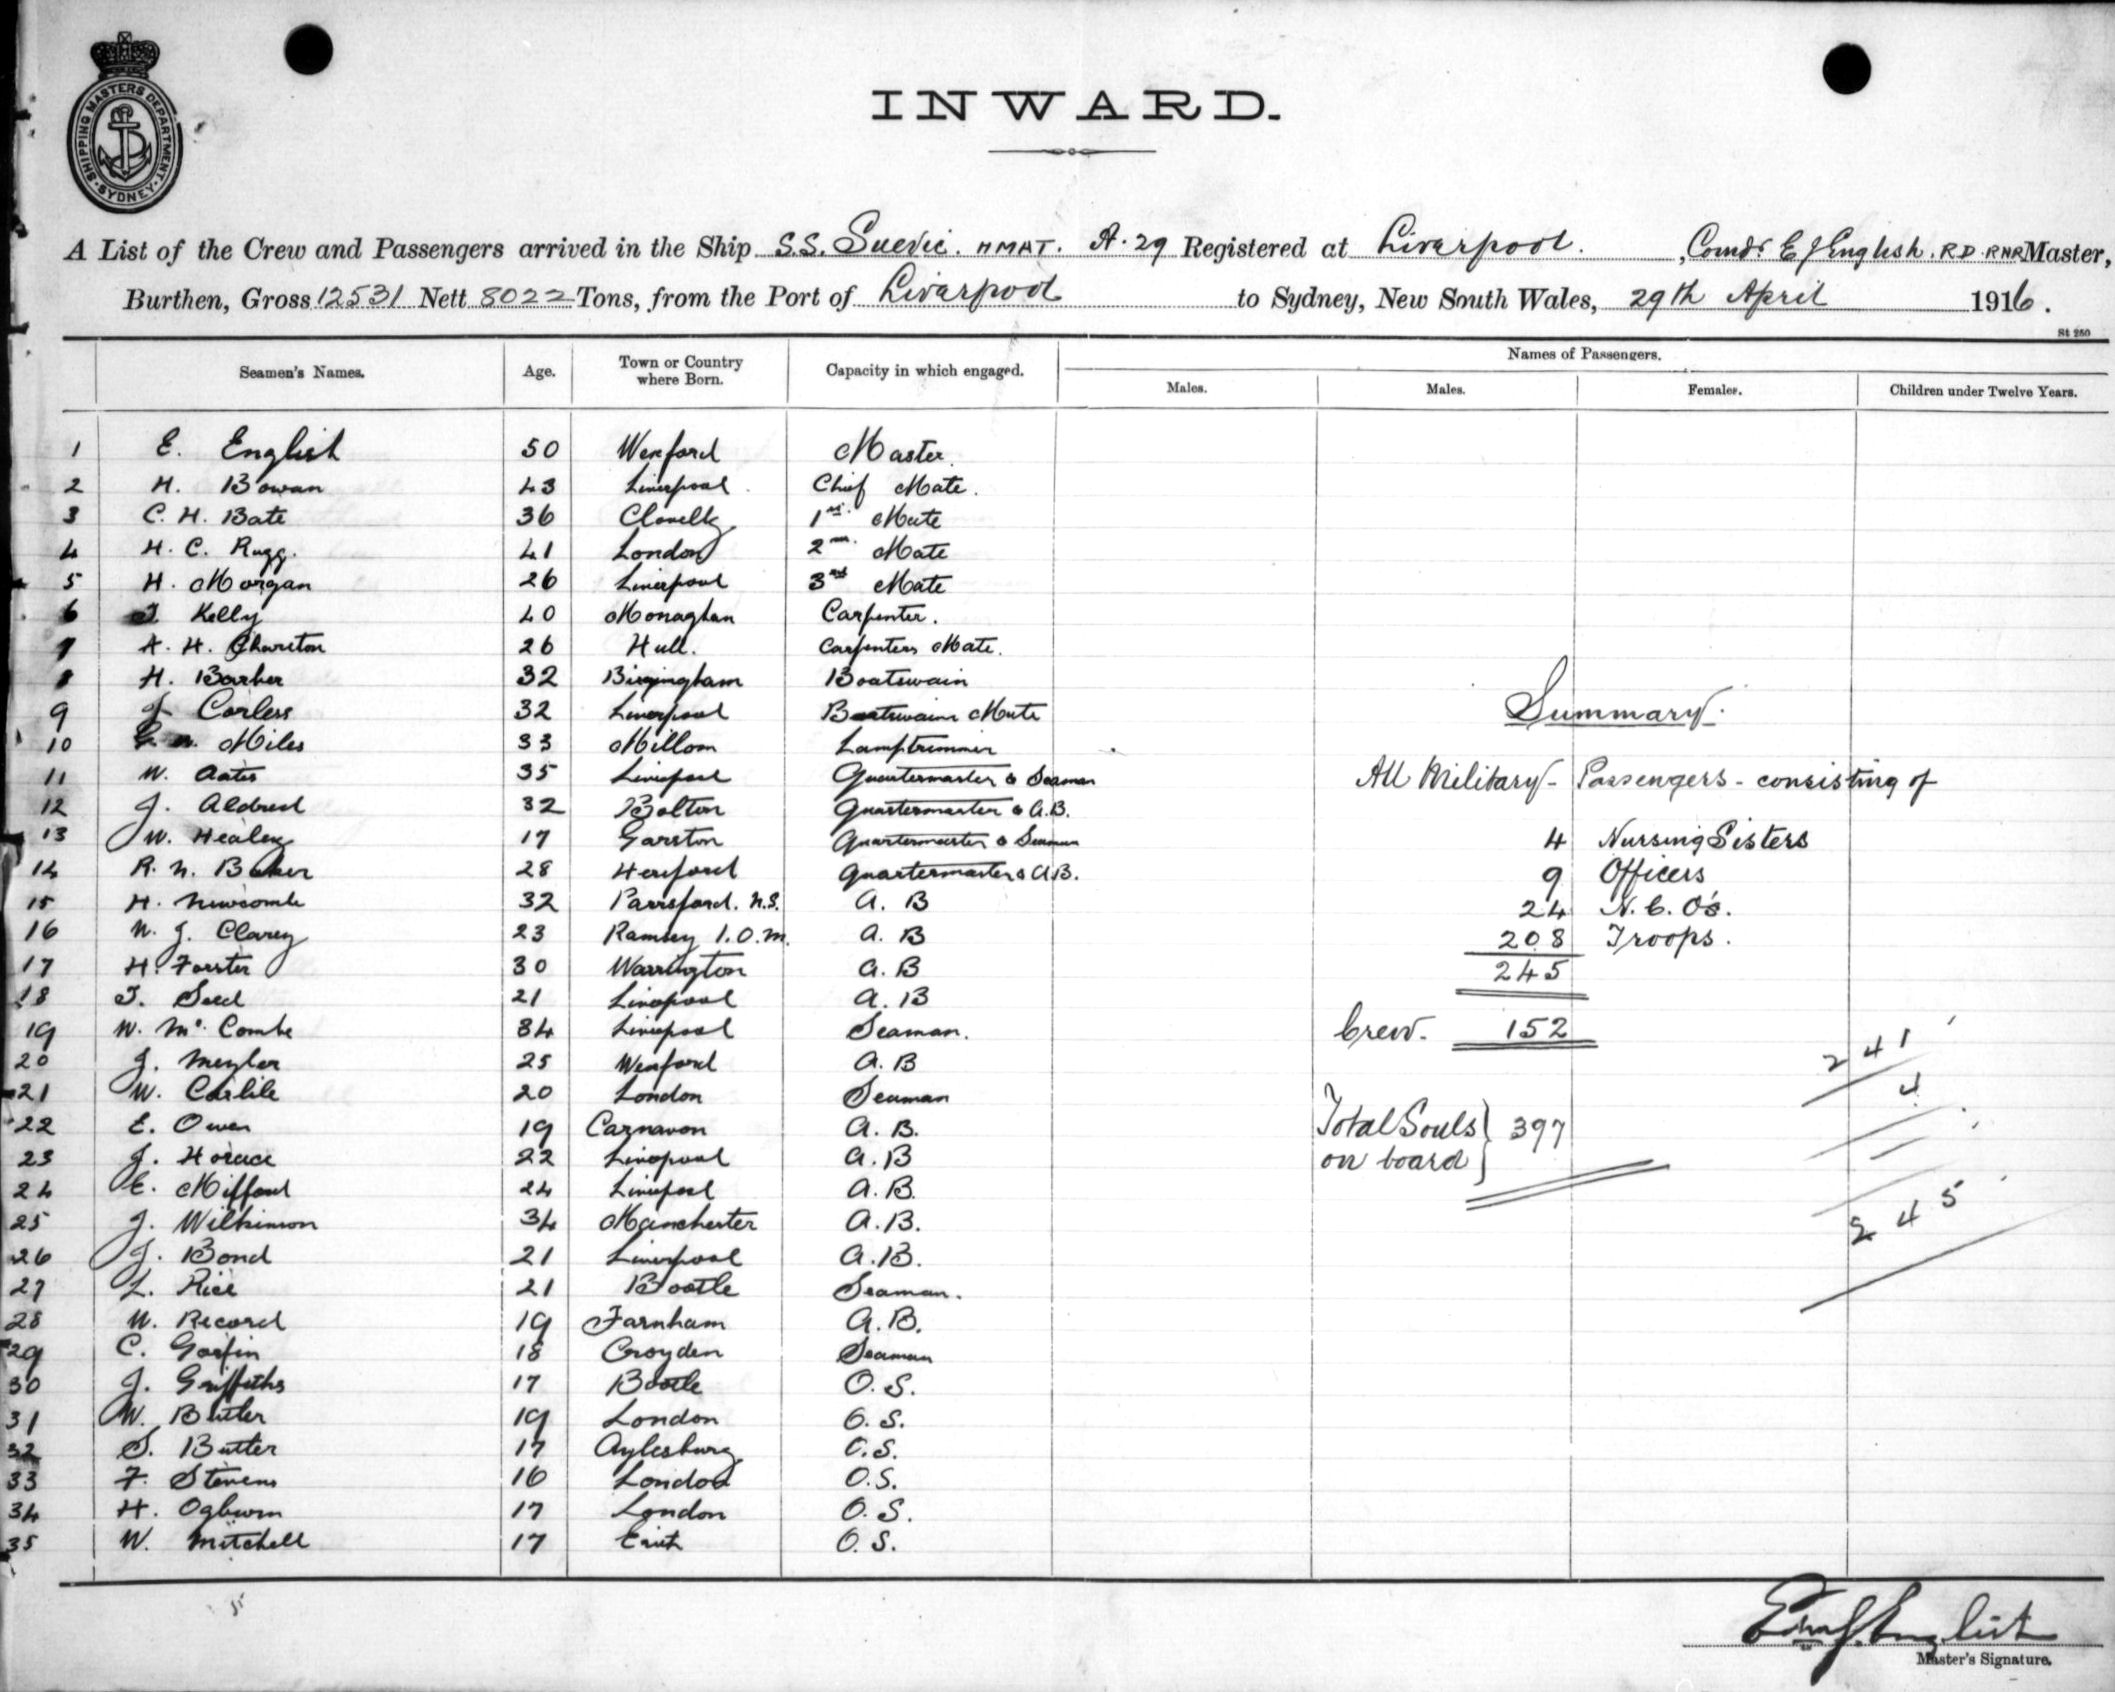 SHIPPING MASTERS DEPARTMENT
SYDNEY
INWARD.
A List of the Crew and Passengers arrived in the Ship S.S. Suevic. HMAT. A.29 Registered at Liverpool. , Comdr. E J English. RD. RNR Master,
Burthen, Gross 12531 Nett 8022 Tons, from the Port of Liverpool to Sydney, New South Wales, 29th April 1916.
St 250
Seamen's Names. Age. Town or Country where Born. Capacity in which engaged. Names of Passengers.
Males. Males. Females. Children under Twelve Years.
1 E. English 50 Wexford Master.
2 H. Bowan 43 Liverpool. Chief Mate.
3 C. H. Bate 36 Clovelly 1st Mate
4 H. C. Rugg. 41 London 2nd Mate
5 H. Morgan 26 Liverpool 3rd Mate
6 Kelly 40 Monaghan Carpenter.
7 A. H. Charlton 26 Hull. Carpenters Mate.
8 H. Barker 32 Birmingham Boatswain
9 J Corless 32 Liverpool Boatswains Mate
10 Miles 33 Millom Lamptrimmer
11 W. 35 Liverpool Quartermaster & Seaman
12 J. Aldred 32 Bolton Quartermaster & A.B.
13 W. Healey 17 Garston Quartermaster & Seaman
14 R. N. Baker 28 Hereford Quartermaster & A.B.
15 H. Newcombe 32 Parrsford. N.S. A. B
16 W. J. Clarey 23 Ramsey I.O.M. A. B
17 H. Forster 30 Warrington A. B
18 T. Seed 21 Liverpool A. B
19 W. Mc. Combe 34 Liverpool Seaman.
20 J. Meyler 25 Wexford A. B
21 W. Carlile 20 London Seaman
22 E. Owen 19 Carnavon A. B.
23 J. Horace 22 Liverpool A. B
24 E. Mifford 24 Liverpool A. B.
25 J. Wilkinson 34 Manchester A. B.
26 J. Bond 21 Liverpool A. B.
27 L. Rice 21 Bootle Seaman.
28 W. Record 19 Farnham A. B.
29 C. Gosfin 18 Croyden Seaman
30 J. Griffiths 17 Bootle O. S.
31 W. Butler 19 London O. S.
32 S. Butter 17 Aylesbury O. S.
33 F. Stevens 16 London O. S.
34 H. Ogburn 17 London O. S.
35 W. Mitchell 17 Erith O. S.
Summary.
All Military - Passengers - consisting of
4 Nursing Sisters
9 Officers
24 N. C. O's.
208 Troops.
245
Crew. 152
Total Souls on board } 397
241
4
245
E J English
Master's Signature.